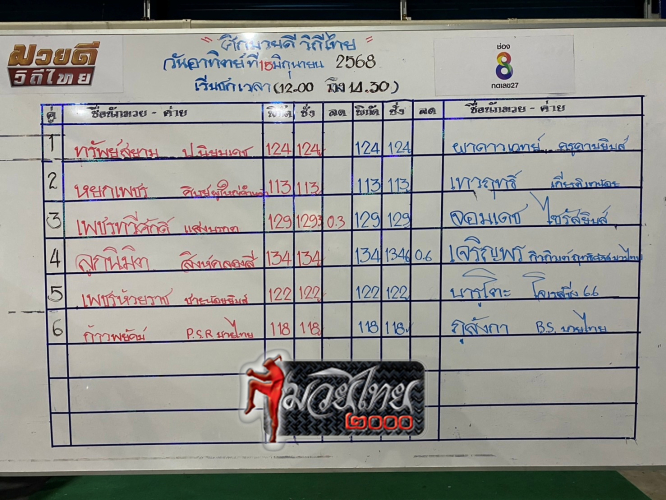 มวยดี
วิถีไทย
"ศึกมวยดี วิถีไทย"
วันอาทิตย์ที่ 15 มิถุนายน 2568
เริ่มชกเวลา (12.00 ถึง 14.30)
ช่อง
8
กดเลข27
คู่ ชื่อนักมวย - ค่าย พิกัด ชั่ง ลด พิกัด ชั่ง ลด ชื่อนักมวย - ค่าย
1 ทรัพย์สยาม ป.นิยมเดช 124 124 124 124 ผาดาวเทวย์
2 หยกเพชร 113 113 113 113 เทวฤทธิ์
3 เพชรทวีศักดิ์ 129 129.3 0.3 129 129 จอมเดช ไชรัสยิมส์
4 ลูกนิมิต สิงห์คลองสี่ 134 134 134 134.6 0.6 เจริญพร
5 เพชรห้วยราช 122 122 122 122 นารูโตะ
6 ก้าวพยัคฆ์ P.S.R. มวยไทย 118 118 118 118 ภูลังกา B.S. มวยไทย
มวยไทย
๒๐๐๐